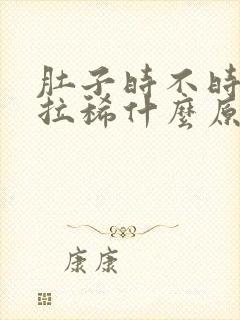 肚子时不时
拉稀什麼原
康康